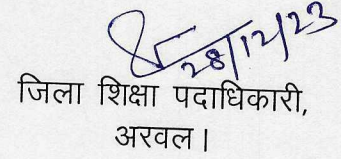 28/12/23
जिला शिक्षा पदाधिकारी,
अरवल।